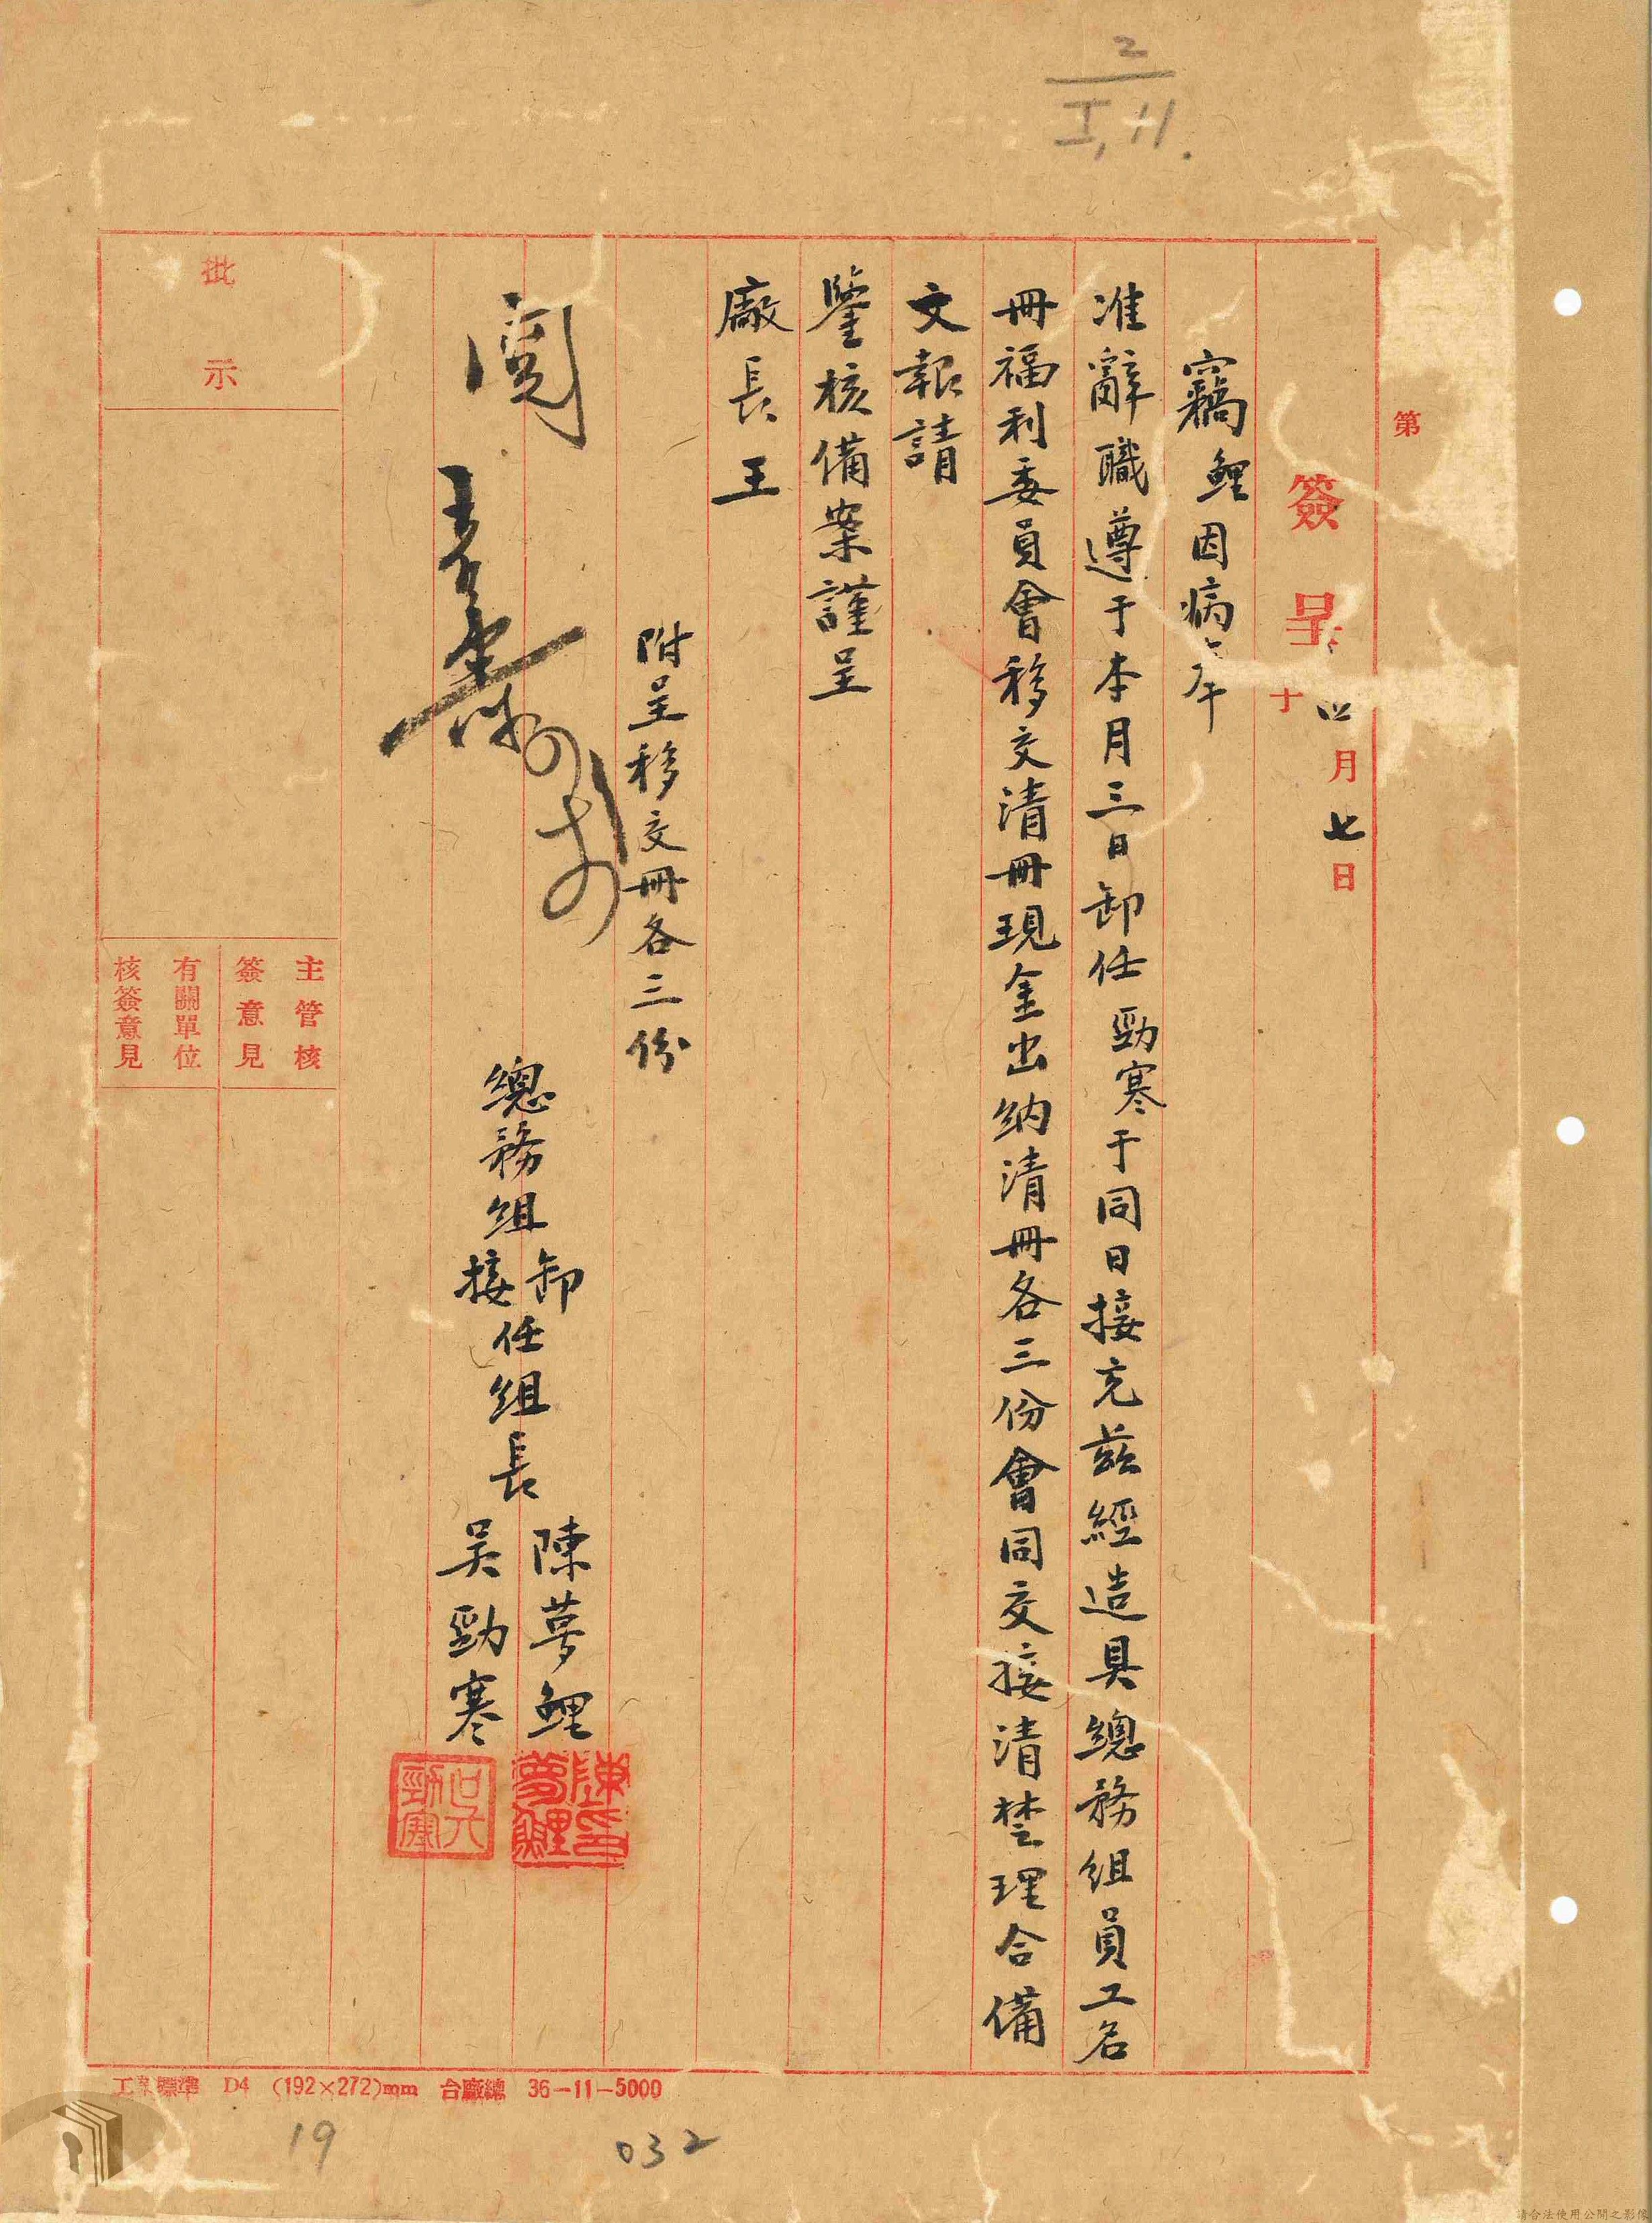 2
I, 11.
第
簽呈
四月七日
于
竊鯉因病奉
准辭職遵于本月三日卸任勁寒于同日接充茲經造具總務組員工名
冊福利委員會移交清冊現金出納清冊各三份會同交接清楚理合備
文報請
鑒核備案謹呈
廠長王
附呈移交冊各三份
總務組卸接任組長陳夢鯉
吳勁寒
陳夢鯉印
吳勁寒
閱
批示
主管核
簽意見
有關單位
核簽意見
工業標準 D4 (192×272)mm 台廠總 36-11-5000
19
032
請合法使用公開之影像